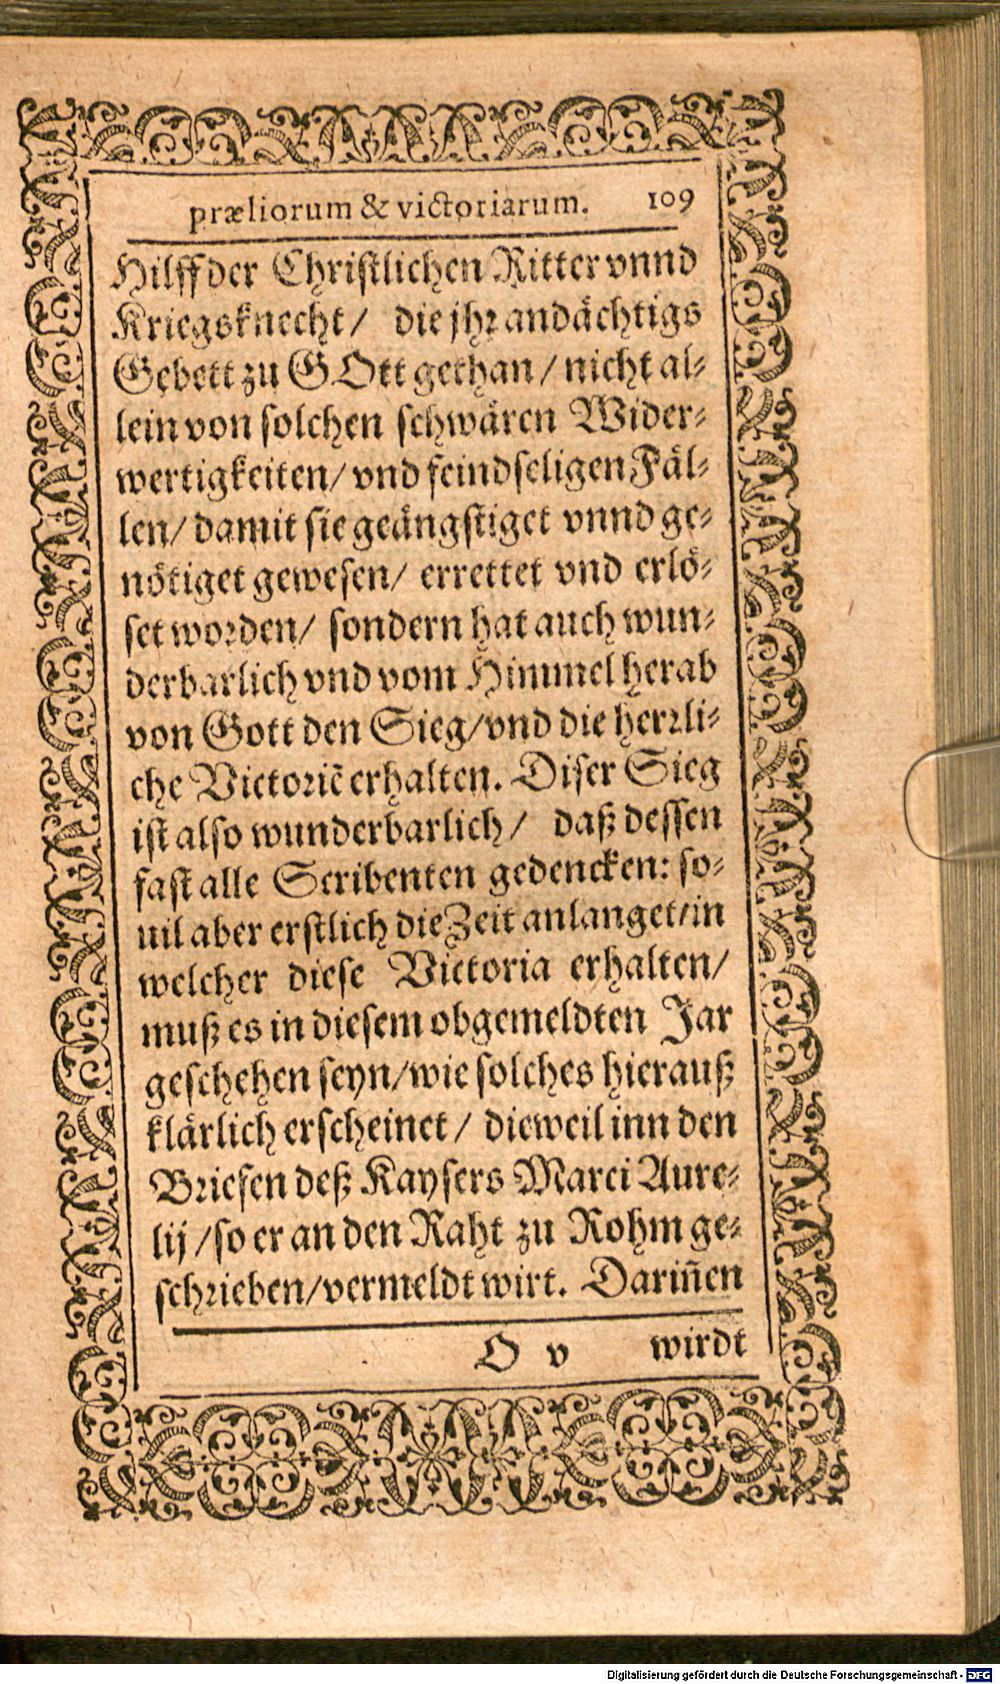 præliorum & victoriarum. 109
Hilff der Christlichen Ritter vnnd
Kriegsknecht/ die jhr andächtigs
Gebett zu GOtt gethan/ nicht al-
lein von solchen schwären Wider-
wertigkeiten/ vnd feindseligen Fäl-
len/ damit sie geängstiget vnnd ge-
nötiget gewesen/ errettet vnd erlö-
set worden/ sondern hat auch wun-
derbarlich vnd vom Himmel herab
von Gott den Sieg/ vnd die herrli-
che Victoriē erhalten. Diser Sieg
ist also wunderbarlich/ daß dessen
fast alle Scribenten gedencken: so-
uil aber erstlich die Zeit anlanget/ in
welcher diese Victoria erhalten/
muß es in diesem obgemeldten Jar
geschehen seyn/ wie solches hierauß
klärlich erscheinet/ dieweil inn den
Briefen deß Kaysers Marci Aure-
lij/ so er an den Raht zu Rohm ge-
schrieben/ vermeldt wirt. Dariñen
O v wirdt
Digitalisierung gefördert durch die Deutsche Forschungsgemeinschaft - DFG